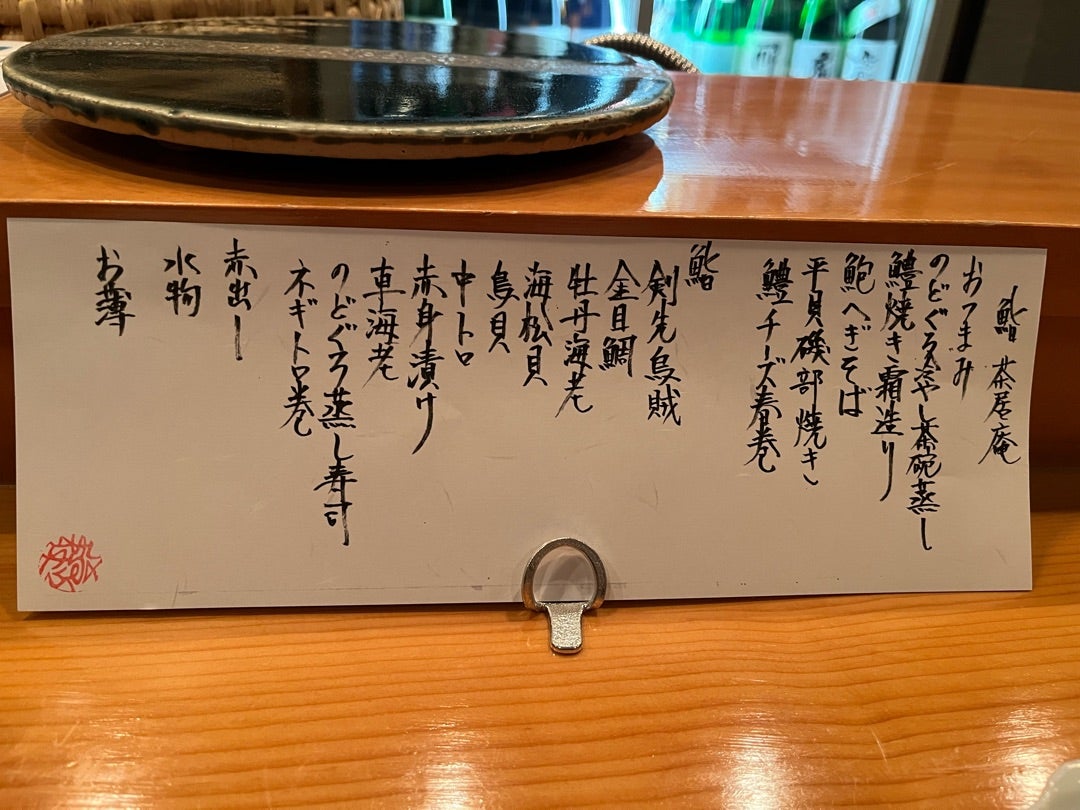 鮨 茶居庵
おつまみ
のどぐろ冷やし茶碗蒸し
鱧焼き霜造り
鮑へぎそば
平貝磯部焼き
鱧チーズ春巻
鮨
剣先烏賊
金目鯛
牡丹海老
海松貝
鳥貝
中トロ
赤身漬け
車海老
のどぐろ蒸し寿司
ネギトロ巻
赤出し
水物
お薄